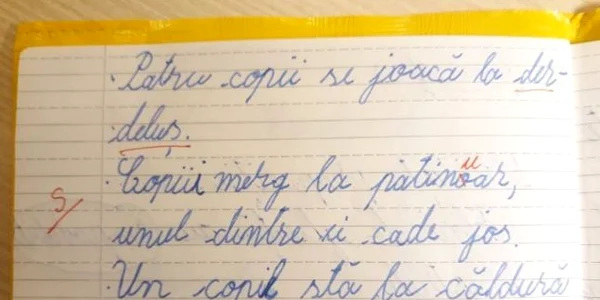 Patru copii se joacă la der-
deluș.
Copiii merg la patinoar,
unul dintre ei cade jos.
Un copil stă la căldură